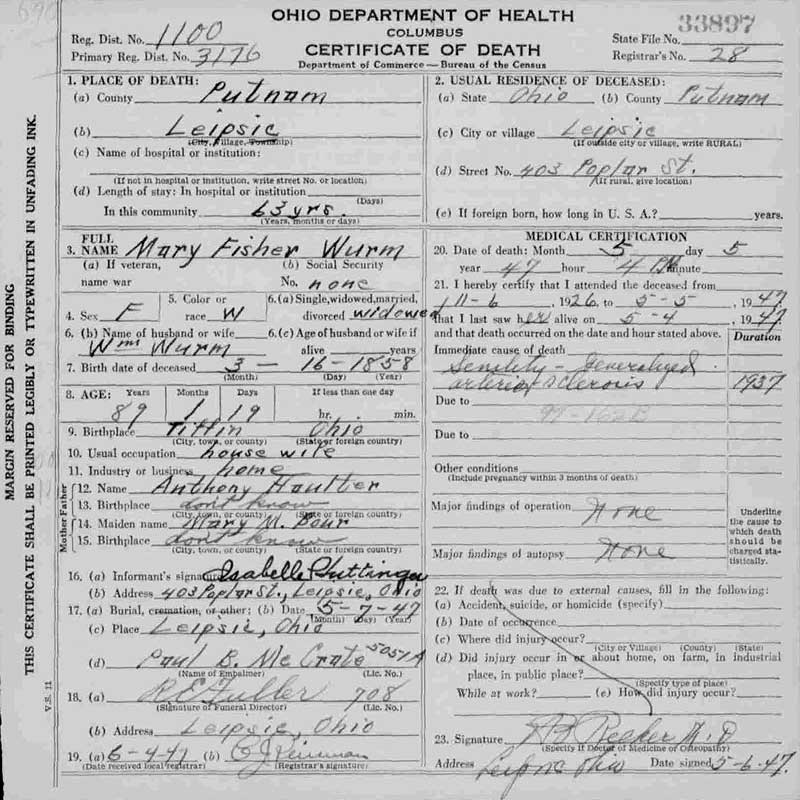 OHIO DEPARTMENT OF HEALTH
COLUMBUS
CERTIFICATE OF DEATH
Department of Commerce — Bureau of the Census
Reg. Dist. No. 1100
Primary Reg. Dist. No. 3176
33897
State File No.
Registrar's No. 28
MARGIN RESERVED FOR BINDING
THIS CERTIFICATE SHALL BE PRINTED LEGIBLY OR TYPEWRITTEN IN UNFADING INK.
V.S. 11
1. PLACE OF DEATH:
(a) County Putnam
(b) Leipsic
(City, Village, Township)
(c) Name of hospital or institution:
(If not in hospital or institution, write street No. or location)
(d) Length of stay: In hospital or institution
(Days)
In this community 63 yrs.
(Years, months or days)
2. USUAL RESIDENCE OF DECEASED:
(a) State Ohio (b) County Putnam
(c) City or village Leipsic
(If outside city or village, write RURAL)
(d) Street No. 403 Poplar St.
(If rural, give location)
(e) If foreign born, how long in U. S. A.? years.
3. FULL NAME Mary Fisher Wurm
(a) If veteran, name war
(b) Social Security No. none
4. Sex F
5. Color or race W
6. (a) Single, widowed, married, divorced widowed
6. (b) Name of husband or wife
Wm Wurm
6. (c) Age of husband or wife if alive years
7. Birth date of deceased 3 — 16 - 1858
(Month) (Day) (Year)
8. AGE: Years Months Days If less than one day
89 1 19 hr. min.
9. Birthplace Tiffin Ohio
(City, town, or county) (State or foreign country)
10. Usual occupation house wife
11. Industry or business home
Father
12. Name Anthony
13. Birthplace dont know
(City, town, or county) (State or foreign country)
Mother
14. Maiden name Mary M. Bour
15. Birthplace dont know
(City, town, or county) (State or foreign country)
16. (a) Informant's signature Isabelle
(b) Address 403 Poplar St., Leipsic, Ohio
17. (a) Burial, cremation, or other: (b) Date 5-7-47
(Month) (Day) (Year)
(c) Place Leipsic, Ohio
(d) Paul B. McCrate 5051A
(Name of Embalmer) (Lic. No.)
18. (a) R E Fuller 708
(Signature of Funeral Director) (Lic. No.)
(b) Address Leipsic, Ohio
19. (a) 6-4-47 (b)
(Date received local registrar) (Registrar's signature)
MEDICAL CERTIFICATION
20. Date of death: Month 5 day 5
year 47 hour 4 PM minute
21. I hereby certify that I attended the deceased from
11-6, 1926, to 5-5, 1947.
that I last saw her alive on 5-4, 1947.
and that death occurred on the date and hour stated above.
Duration
Immediate cause of death
Senility - Generalized
arterio sclerosis 1937
Due to
Due to
Other conditions
(Include pregnancy within 3 months of death)
Major findings of operation None
Major findings of autopsy None
Underline the cause to which death should be charged statistically.
22. If death was due to external causes, fill in the following:
(a) Accident, suicide, or homicide (specify)
(b) Date of occurrence
(c) Where did injury occur?
(City or Village) (County) (State)
(d) Did injury occur in or about home, on farm, in industrial
place, in public place?
(Specify type of place)
While at work? (e) How did injury occur?
23. Signature M.D
(Specify If Doctor of Medicine or Osteopathy)
Address Leipsic Ohio Date signed 5-6-47.